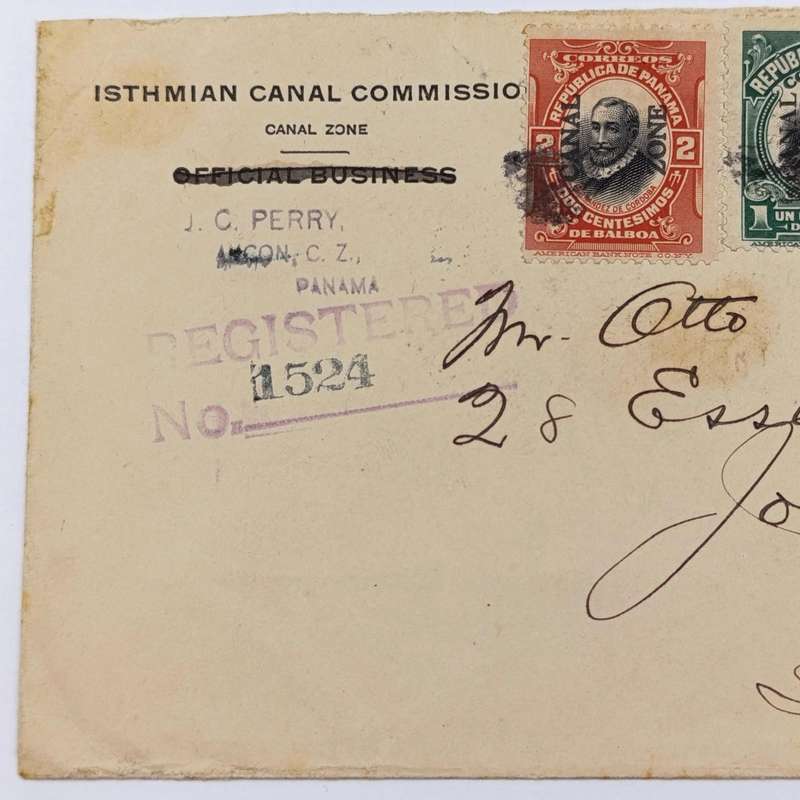 ISTHMIAN CANAL COMMISSIO
CANAL ZONE
OFFICIAL BUSINESS
J. C. PERRY,
ANCON, C. Z.,
PANAMA
REGISTERED
1524
No.
CORREOS
REPUBLICA DE PANAMA
CANAL ZONE
2 2
FERNANDEZ DE CORDOBA
DOS CENTESIMOS
DE BALBOA
AMERICAN BANK NOTE CO. N.Y.
REPUB
CANAL
1
UN
D
AMERICA
Mr. Otto
28 Esse
Jo